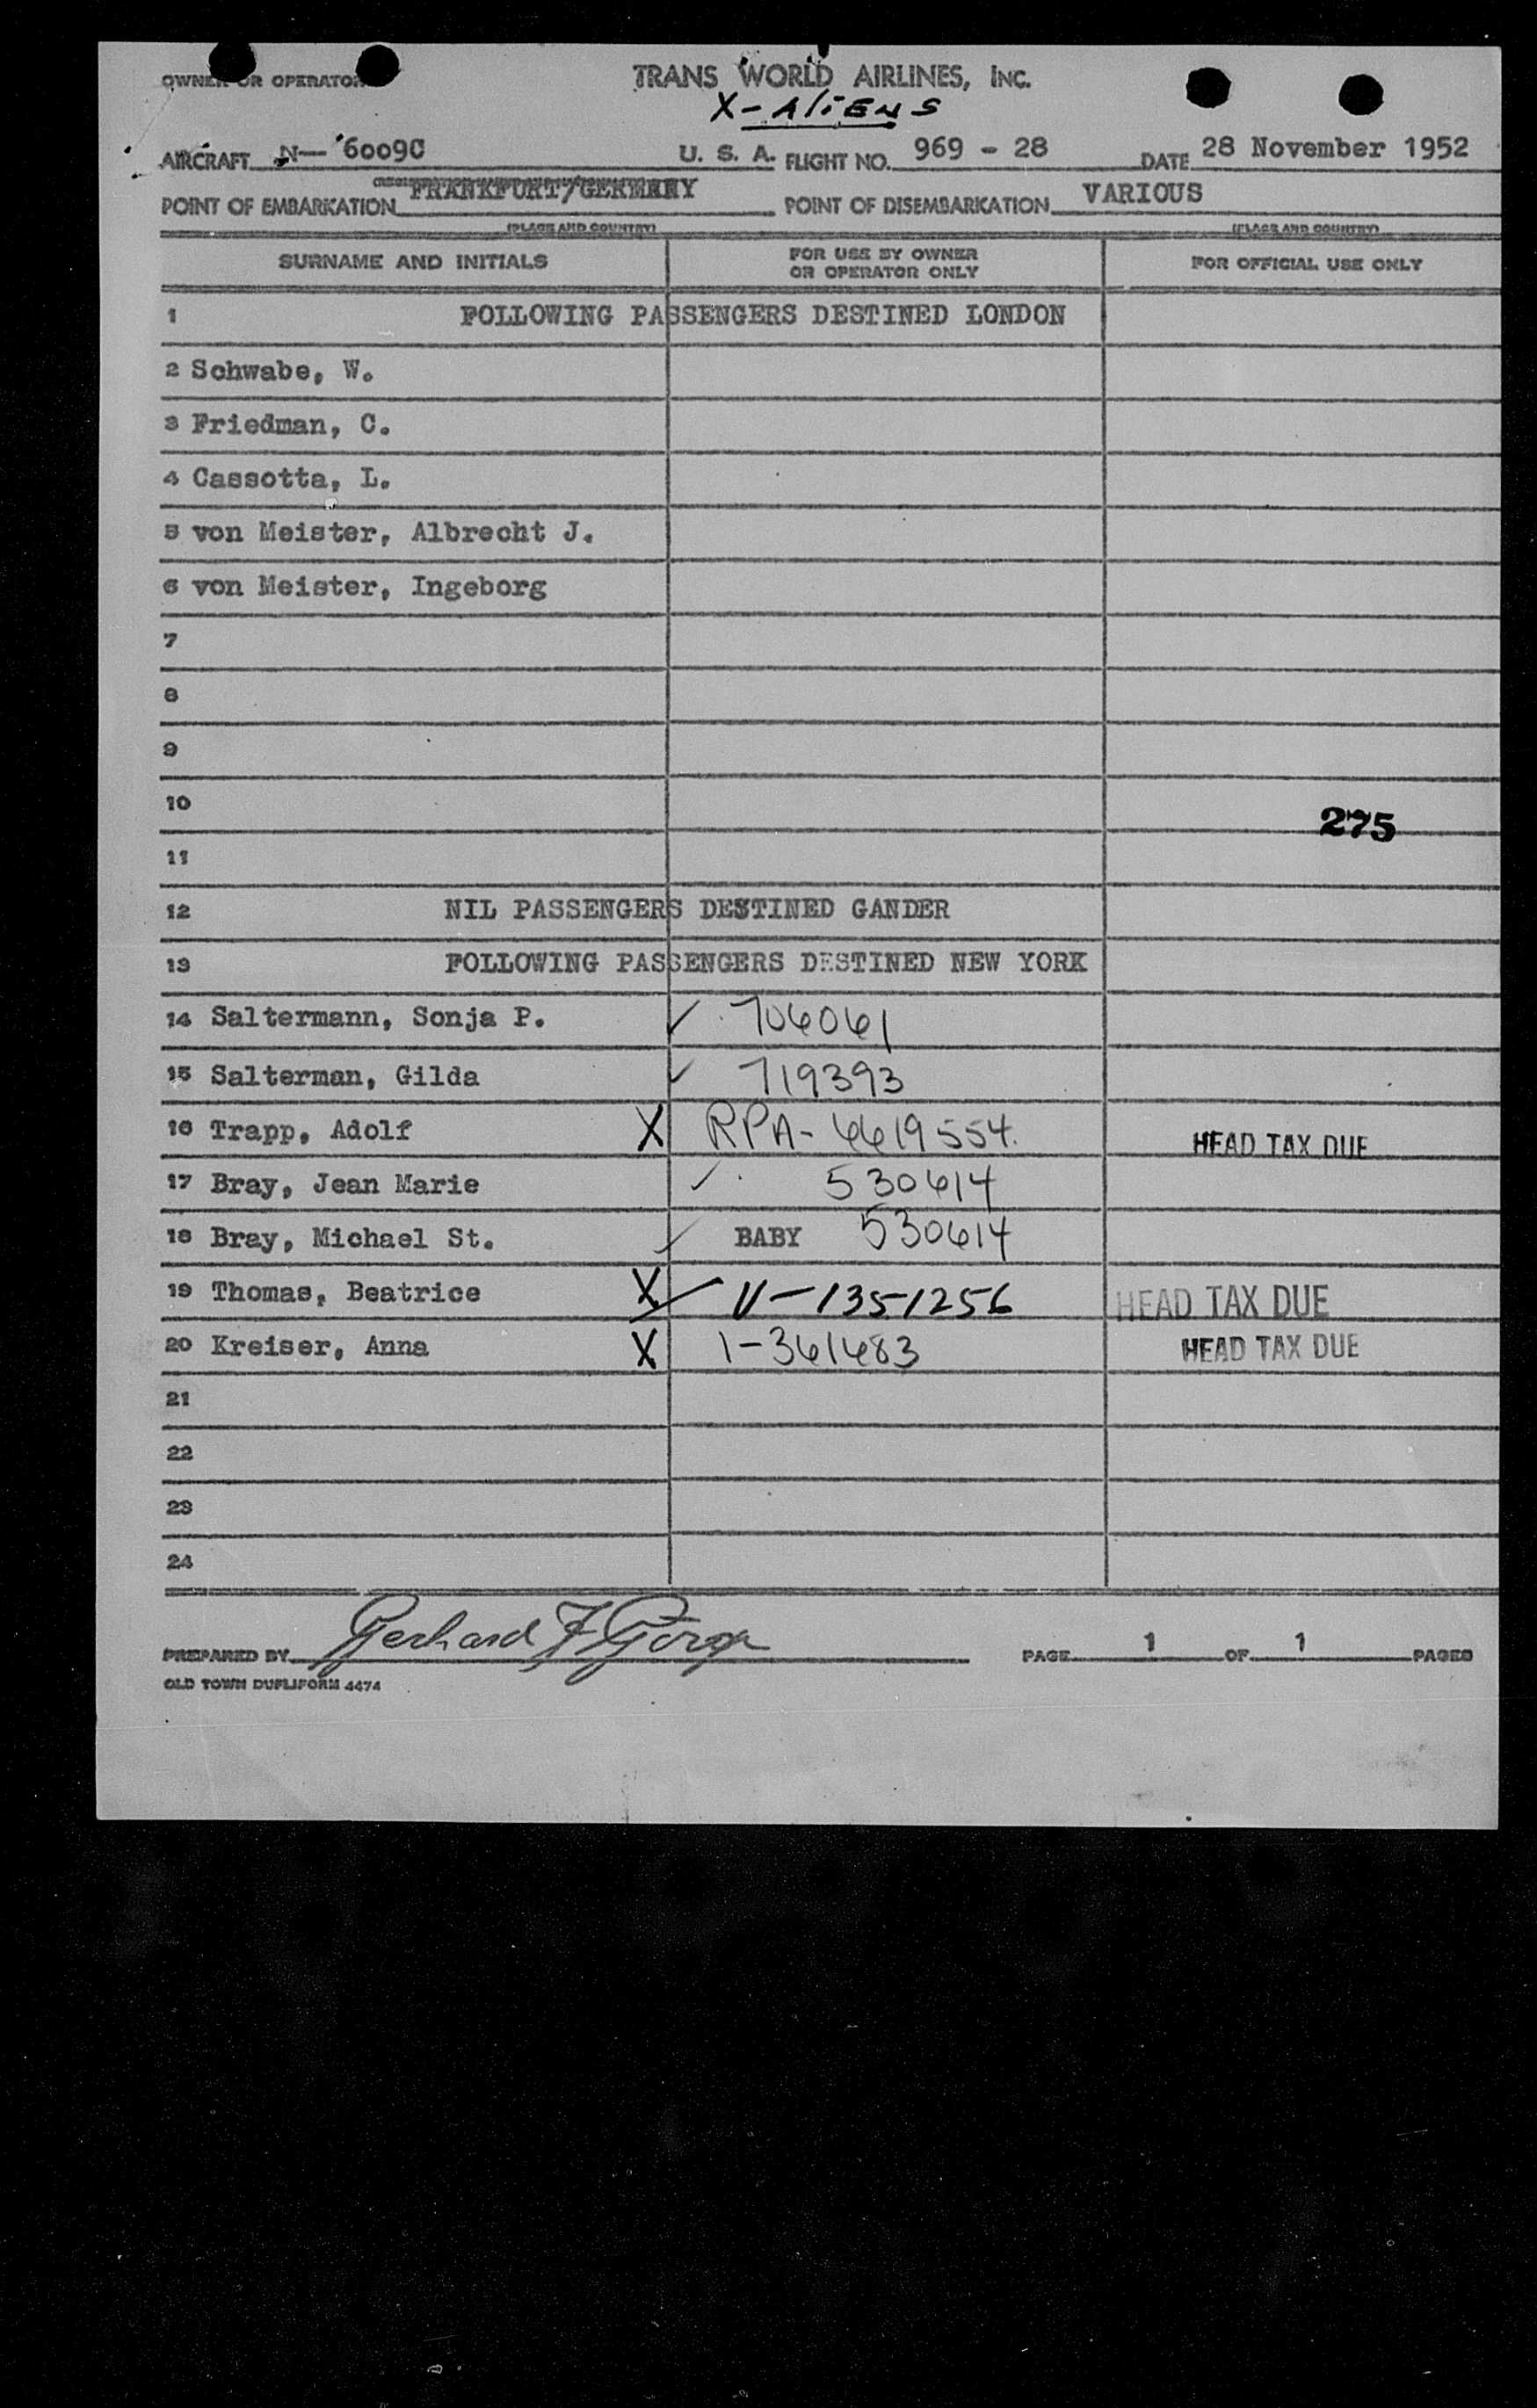 OWNER OR OPERATOR TRANS WORLD AIRLINES, INC.
X-ALiENS
AIRCRAFT N- 6009C U. S. A. FLIGHT NO. 969 - 28 DATE 28 November 1952
POINT OF EMBARKATION FRANKFURT/GERMANY POINT OF DISEMBARKATION VARIOUS
(PLACE AND COUNTRY) (PLACE AND COUNTRY)
SURNAME AND INITIALS FOR USE BY OWNER OR OPERATOR ONLY FOR OFFICIAL USE ONLY
1 FOLLOWING PASSENGERS DESTINED LONDON
2 Schwabe, W.
3 Friedman, C.
4 Cassotta, L.
5 von Meister, Albrecht J.
6 von Meister, Ingeborg
7
8
9
10 275
11
12 NIL PASSENGERS DESTINED GANDER
13 FOLLOWING PASSENGERS DESTINED NEW YORK
14 Saltermann, Sonja P. ✓ 706061
15 Salterman, Gilda ✓ 719393
16 Trapp, Adolf X RPA-6619554. HEAD TAX DUE
17 Bray, Jean Marie ✓ 530614
18 Bray, Michael St. ✓ BABY 530614
19 Thomas, Beatrice X ✓ V-1351256 HEAD TAX DUE
20 Kreiser, Anna X 1-361483 HEAD TAX DUE
21
22
23
24
PREPARED BY Gerhard F. PAGE 1 OF 1 PAGES
OLD TOWN DUPLIFORM 4474